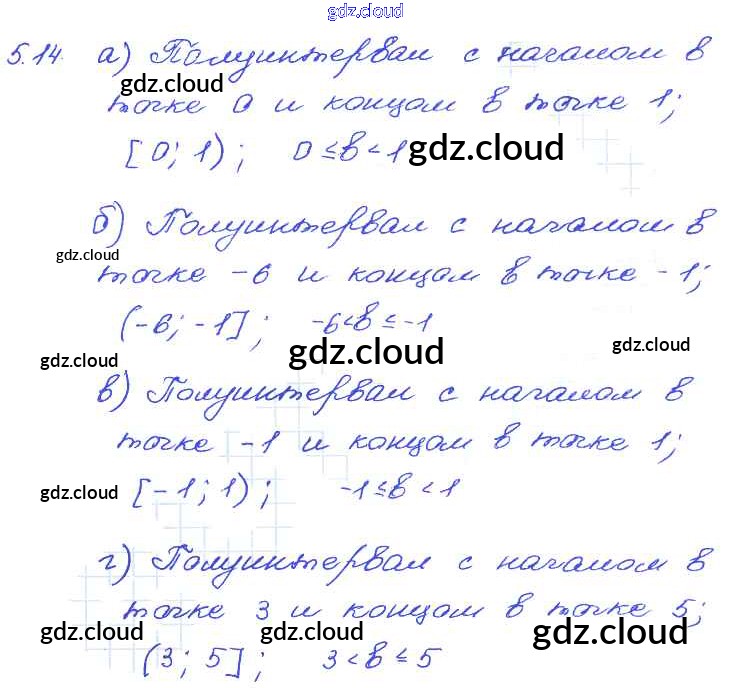 gdz.cloud
5.14. а) Полуинтервал с началом в
gdz.cloud
точке 0 и концом в точке 1;
[0; 1); 0 ≤ в < 1 gdz.cloud
б) Полуинтервал с началом в
gdz.cloud
точке -6 и концом в точке -1;
(-6; -1]; -6 < в ≤ -1
gdz.cloud gdz.cloud gdz.cloud
в) Полуинтервал с началом в
точке -1 и концом в точке 1;
gdz.cloud [-1; 1); -1 ≤ в < 1
г) Полуинтервал с началом в
точке 3 и концом в точке 5;
gdz.cloud gdz.cloud gdz.cloud
(3; 5]; 3 < в ≤ 5